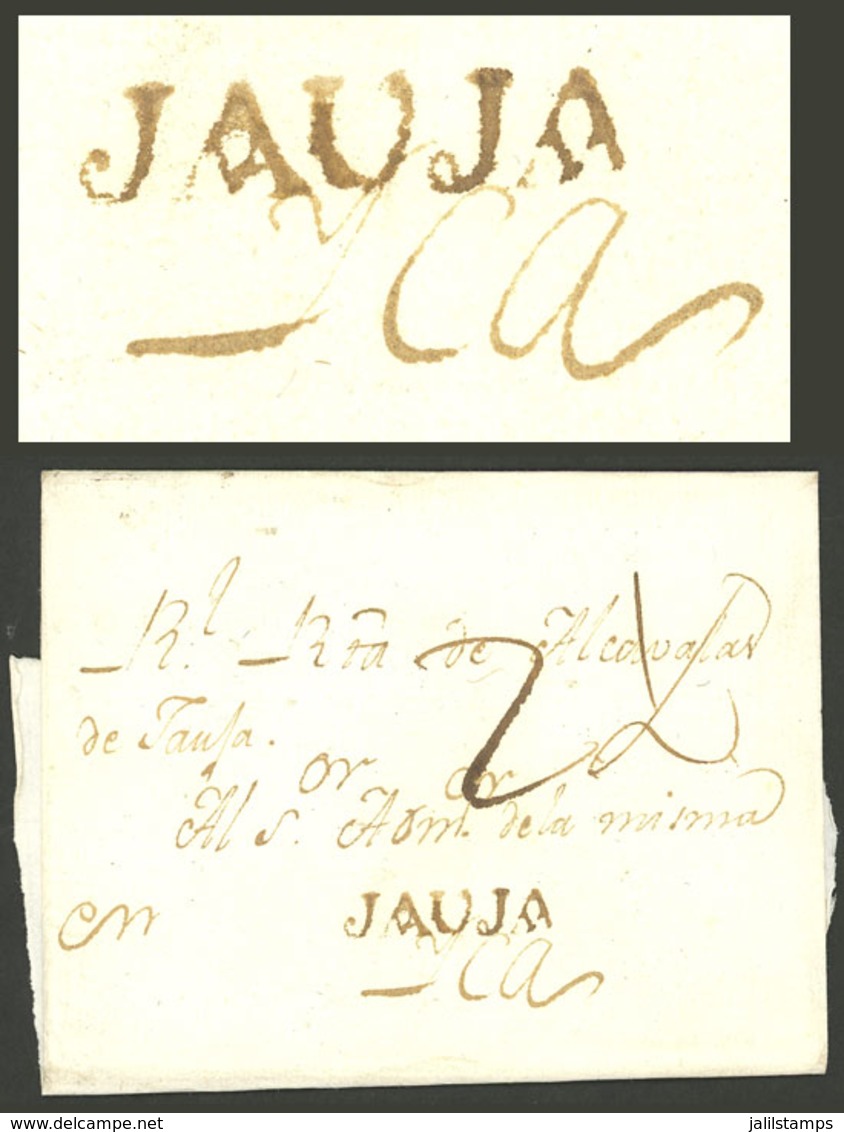 JAUJA
Yca
Rl. Rta de Alcavalas
de Jauja.
Al Sor. Admor. de la misma
en
JAUJA
Yca
www.delcampe.net
jalilstamps